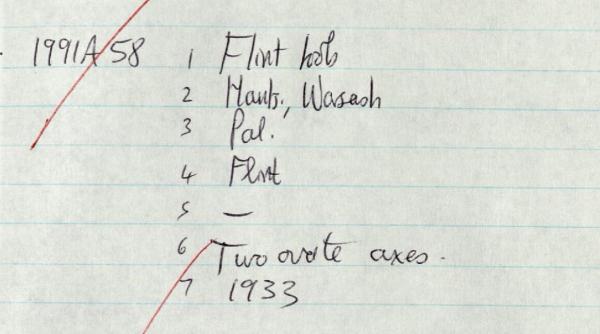 1991A/58 1 Flint tools
2 Hants., Warsash
3 Pal.
4 Flint
5 —
6 Two ovate axes.
7 1933